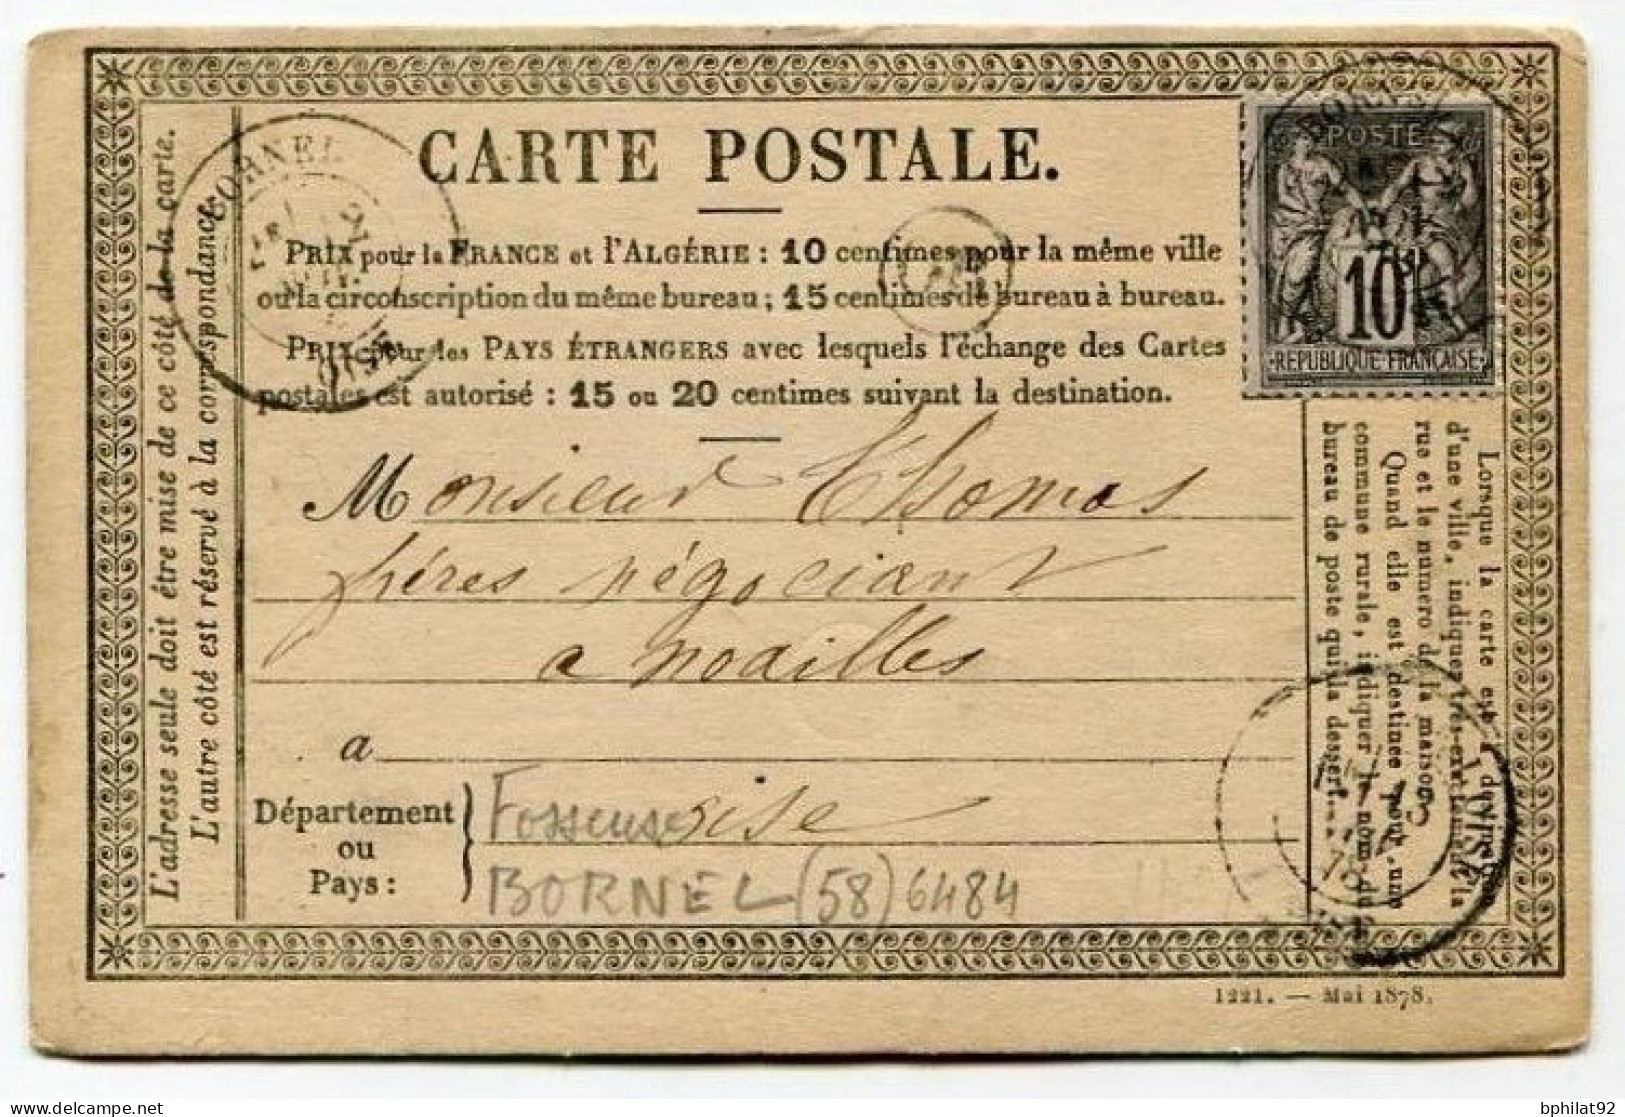 CARTE POSTALE.
PRIX pour la FRANCE et l'ALGÉRIE : 10 centimes pour la même ville
ou la circonscription du même bureau ; 15 centimes de bureau à bureau.
PRIX pour les PAYS ÉTRANGERS avec lesquels l'échange des Cartes
postales est autorisé : 15 ou 20 centimes suivant la destination.
L'adresse seule doit être mise de ce côté de la carte.
L'autre côté est réservé à la correspondance.
BORNEL
OISE
BORNEL
POSTE
10
REPUBLIQUE FRANÇAISE
Monsieur Thomas
frères négociant
a noailles
a
Département
ou
Pays :
oise
Fosseuse
BORNEL (58) 6484
Lorsque la carte est
d'une ville, indiquer très-exactement la
rue et le numéro de la maison.
Quand elle est destinée pour une
commune rurale, indiquer le nom du
bureau de poste qui la dessert.
1221. — Mai 1878.
bphilat92